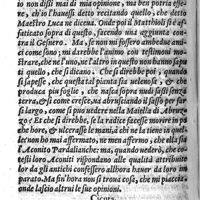 io non dissi mai di mia opinione, ma ben potria esse-
re, ch'io l'hauessi detto recitando quello, che detto
Maestro Luca ne diceua. Onde poi il Matthioli si è af-
faticato sopra di questo, facendo una aggiunta con-
tra il Gesnero. Ma, se non mi fossero ambedue amici
come sono, mi darebbe l'animo con testimonio mo-
strare, che ne l'uno, ne l'altro sopra di questo non ha saputo
quello, che si dicano. Che si direbbe poi, quando
si sapesse, che questa tal pianta sia uelenosa, & che
produca piu foglie, & che nasca sopra nudi sassi senza
terra, & si come cresce, uà abrusciando il sasso per se
luogo, come si può uedere nella Maiella di Abruz-
zo; Et che si direbbe, se la radice facesse morire in po
che hore, & ulcerasse le mani, à chi ne la tiene in quel-
le: non ho mai affermato, ne men affermo, che ella sia
l'Aconito Pardalianche: ma, quando uederò, che co-
testi loro Aconiti rispondano alle qualità attribuite
lor da gli antichi confesserò allhora hauer da loro im-
parato. ma sin'hora non si troua cosa, che mi piaccia:
onde lascio altrui le sue opinioni.
Cicuta.